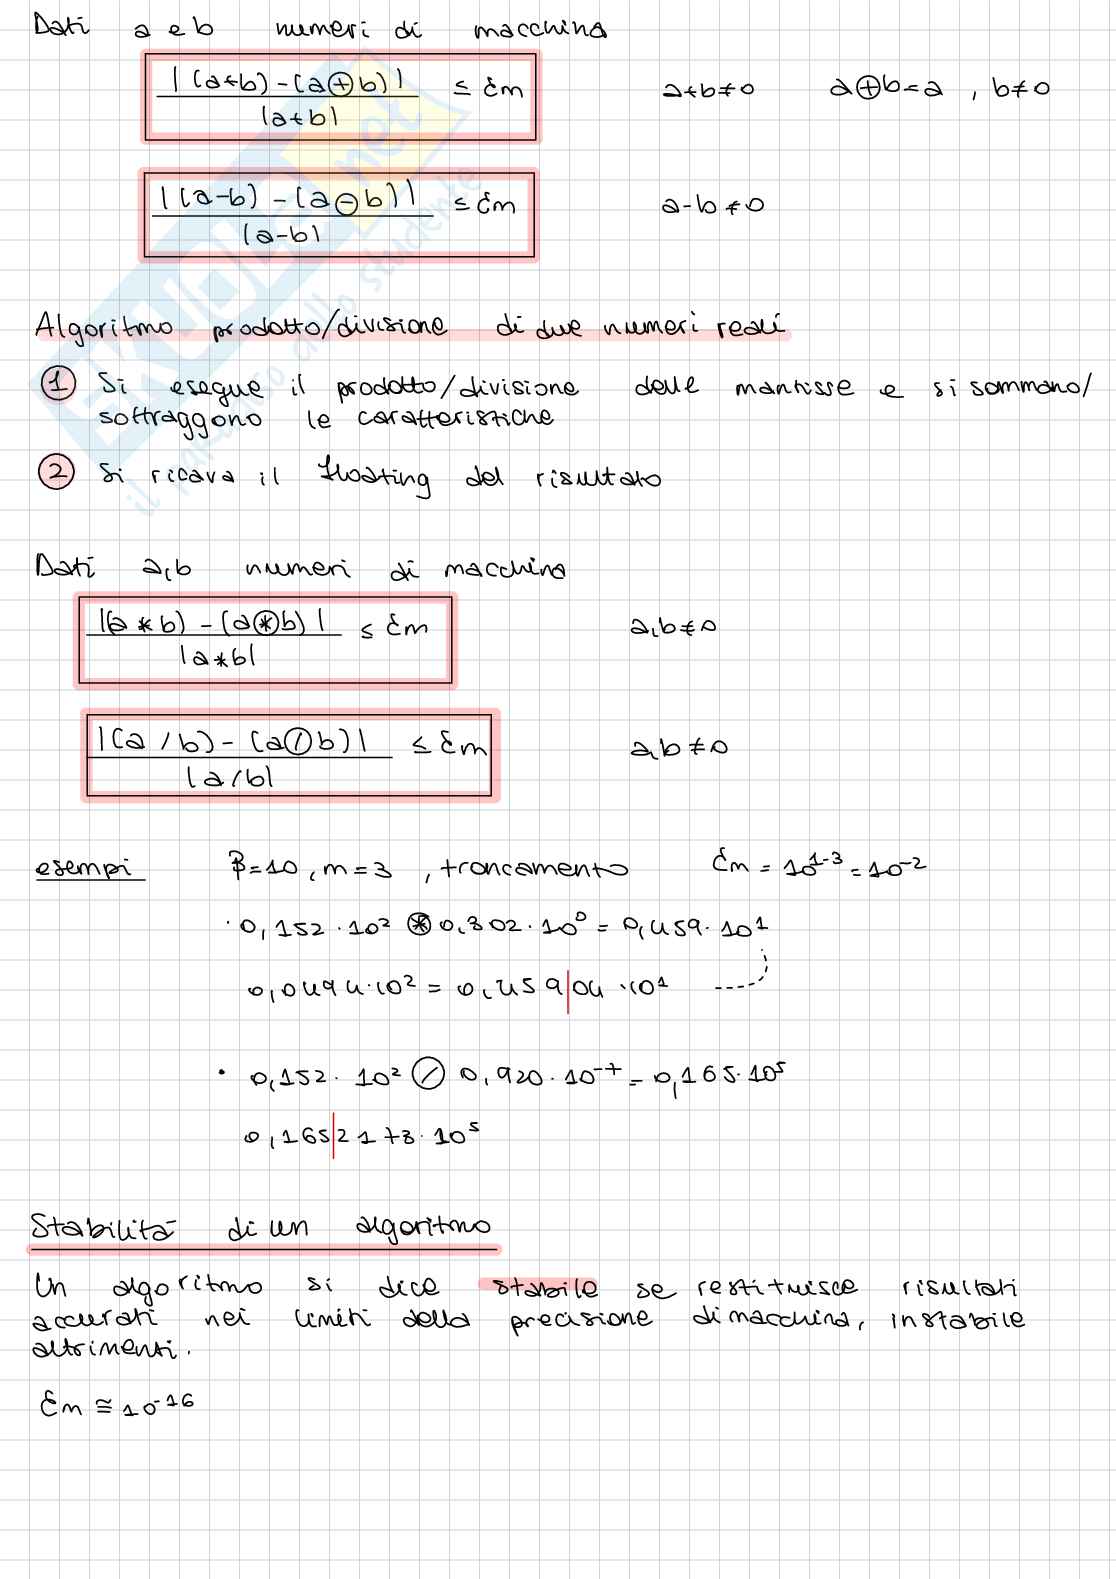 Dati a e b numeri di macchina
|(a+b)-(a⊕b)| / |a+b| ≤ Ɛm    a+b≠0    a⊕b=a , b≠0
|(a-b)-(a⊖b)| / |a-b| ≤ Ɛm    a-b≠0
Algoritmo prodotto/divisione di due numeri reali
① Si esegue il prodotto/divisione delle mantisse e si sommano/
sottraggono le caratteristiche
② Si ricava il floating del risultato
Dati a,b numeri di macchina
|(a*b)-(a⊛b)| / |a*b| ≤ Ɛm    a,b≠0
|(a/b)-(a⊘b)| / |a/b| ≤ Ɛm    a,b≠0
esempi    β=10, m=3, troncamento    Ɛm = 10¹⁻³ = 10⁻²
· 0,152·10² ⊛ 0,302·10⁰ = 0,459·10¹
0,0494·10² = 0,459|04·10¹
· 0,152·10² ⊘ 0,920·10⁻⁷ = 0,165·10⁵
0,165|2173·10⁵
Stabilità di un algoritmo
Un algoritmo si dice stabile se restituisce risultati
accurati nei limiti della precisione di macchina, instabile
altrimenti.
Ɛm ≅ 10⁻¹⁶